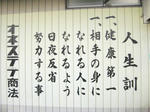 人生訓
一、健康第一
一、相手の身に
なれる人に
なれるよう
日夜反省
努力する事
商法